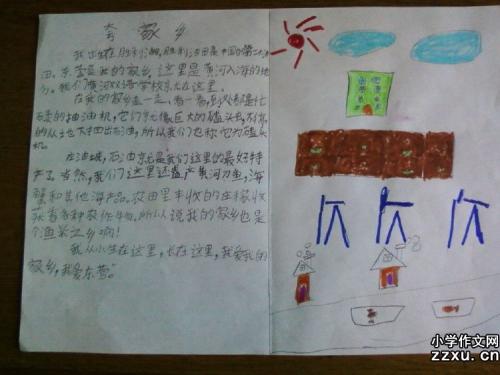 家乡
我出生在胜利油田,胜利油田是中国第二大油
田。东营是我的家乡,这里是黄河入海的地
方。我们黄河双语学校就在这里。
在我的家乡走一走,看一看,到处都是忙
碌的抽油机,它们就像巨大的磕头虫,不停
的从地大中四出石油,所以我们也称它为磕头
机。
在油城,石油就是我们这里的最好特
产了。当然,我们这里还盛产黄河刀鱼,海
蟹和其他海产品。农田里丰收的庄稼收
获着各种农作物。所以说我的家乡也是
个鱼米之乡啊!
我从小生在这里,长在这里,我爱我的
家乡,我爱东营。
小学作文网
zzxu.cn